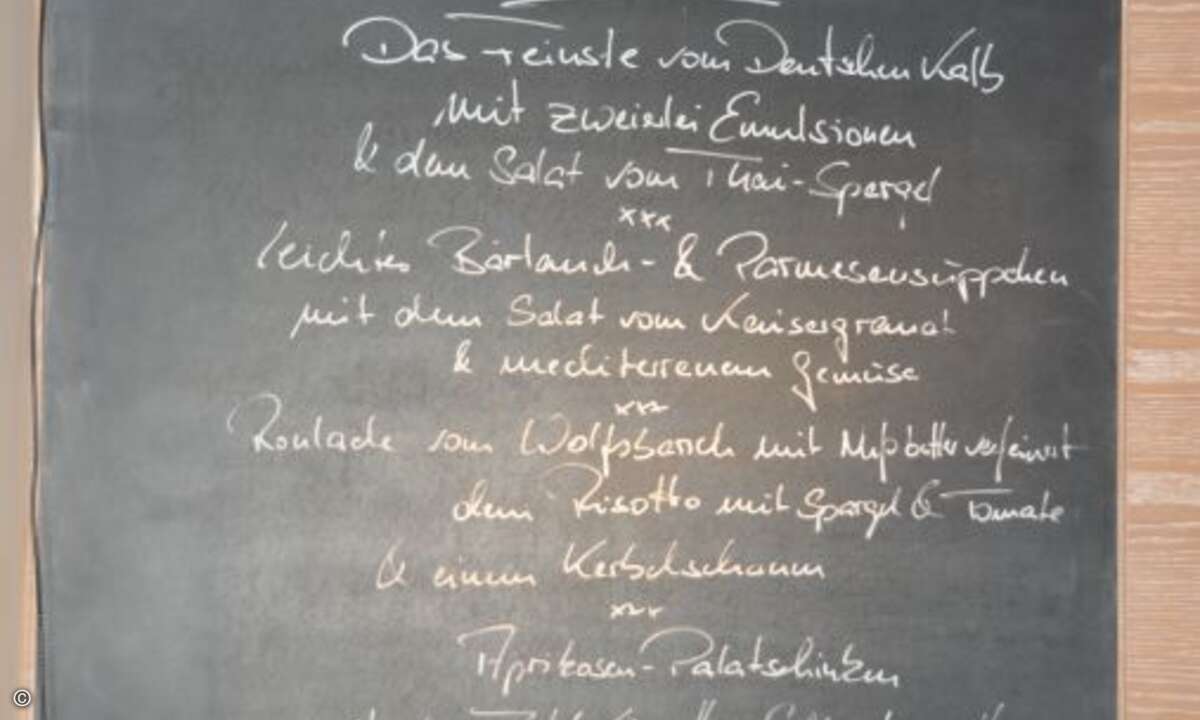 Das Feinste vom Deutschen Kalb
mit zweierlei Emulsionen
& dem Salat vom Thai-Spargel
xxx
leichtes Bärlauch- & Parmesansüppchen
mit dem Salat vom Kaisergranat
& mediterranem Gemüse
xxx
Roulade vom Wolfsbarsch mit Nußbutter verfeinert
dem Risotto mit Spargel & Tomate
& einem Kerbelschaum
xxx
Aprikosen-Palatschinken
©